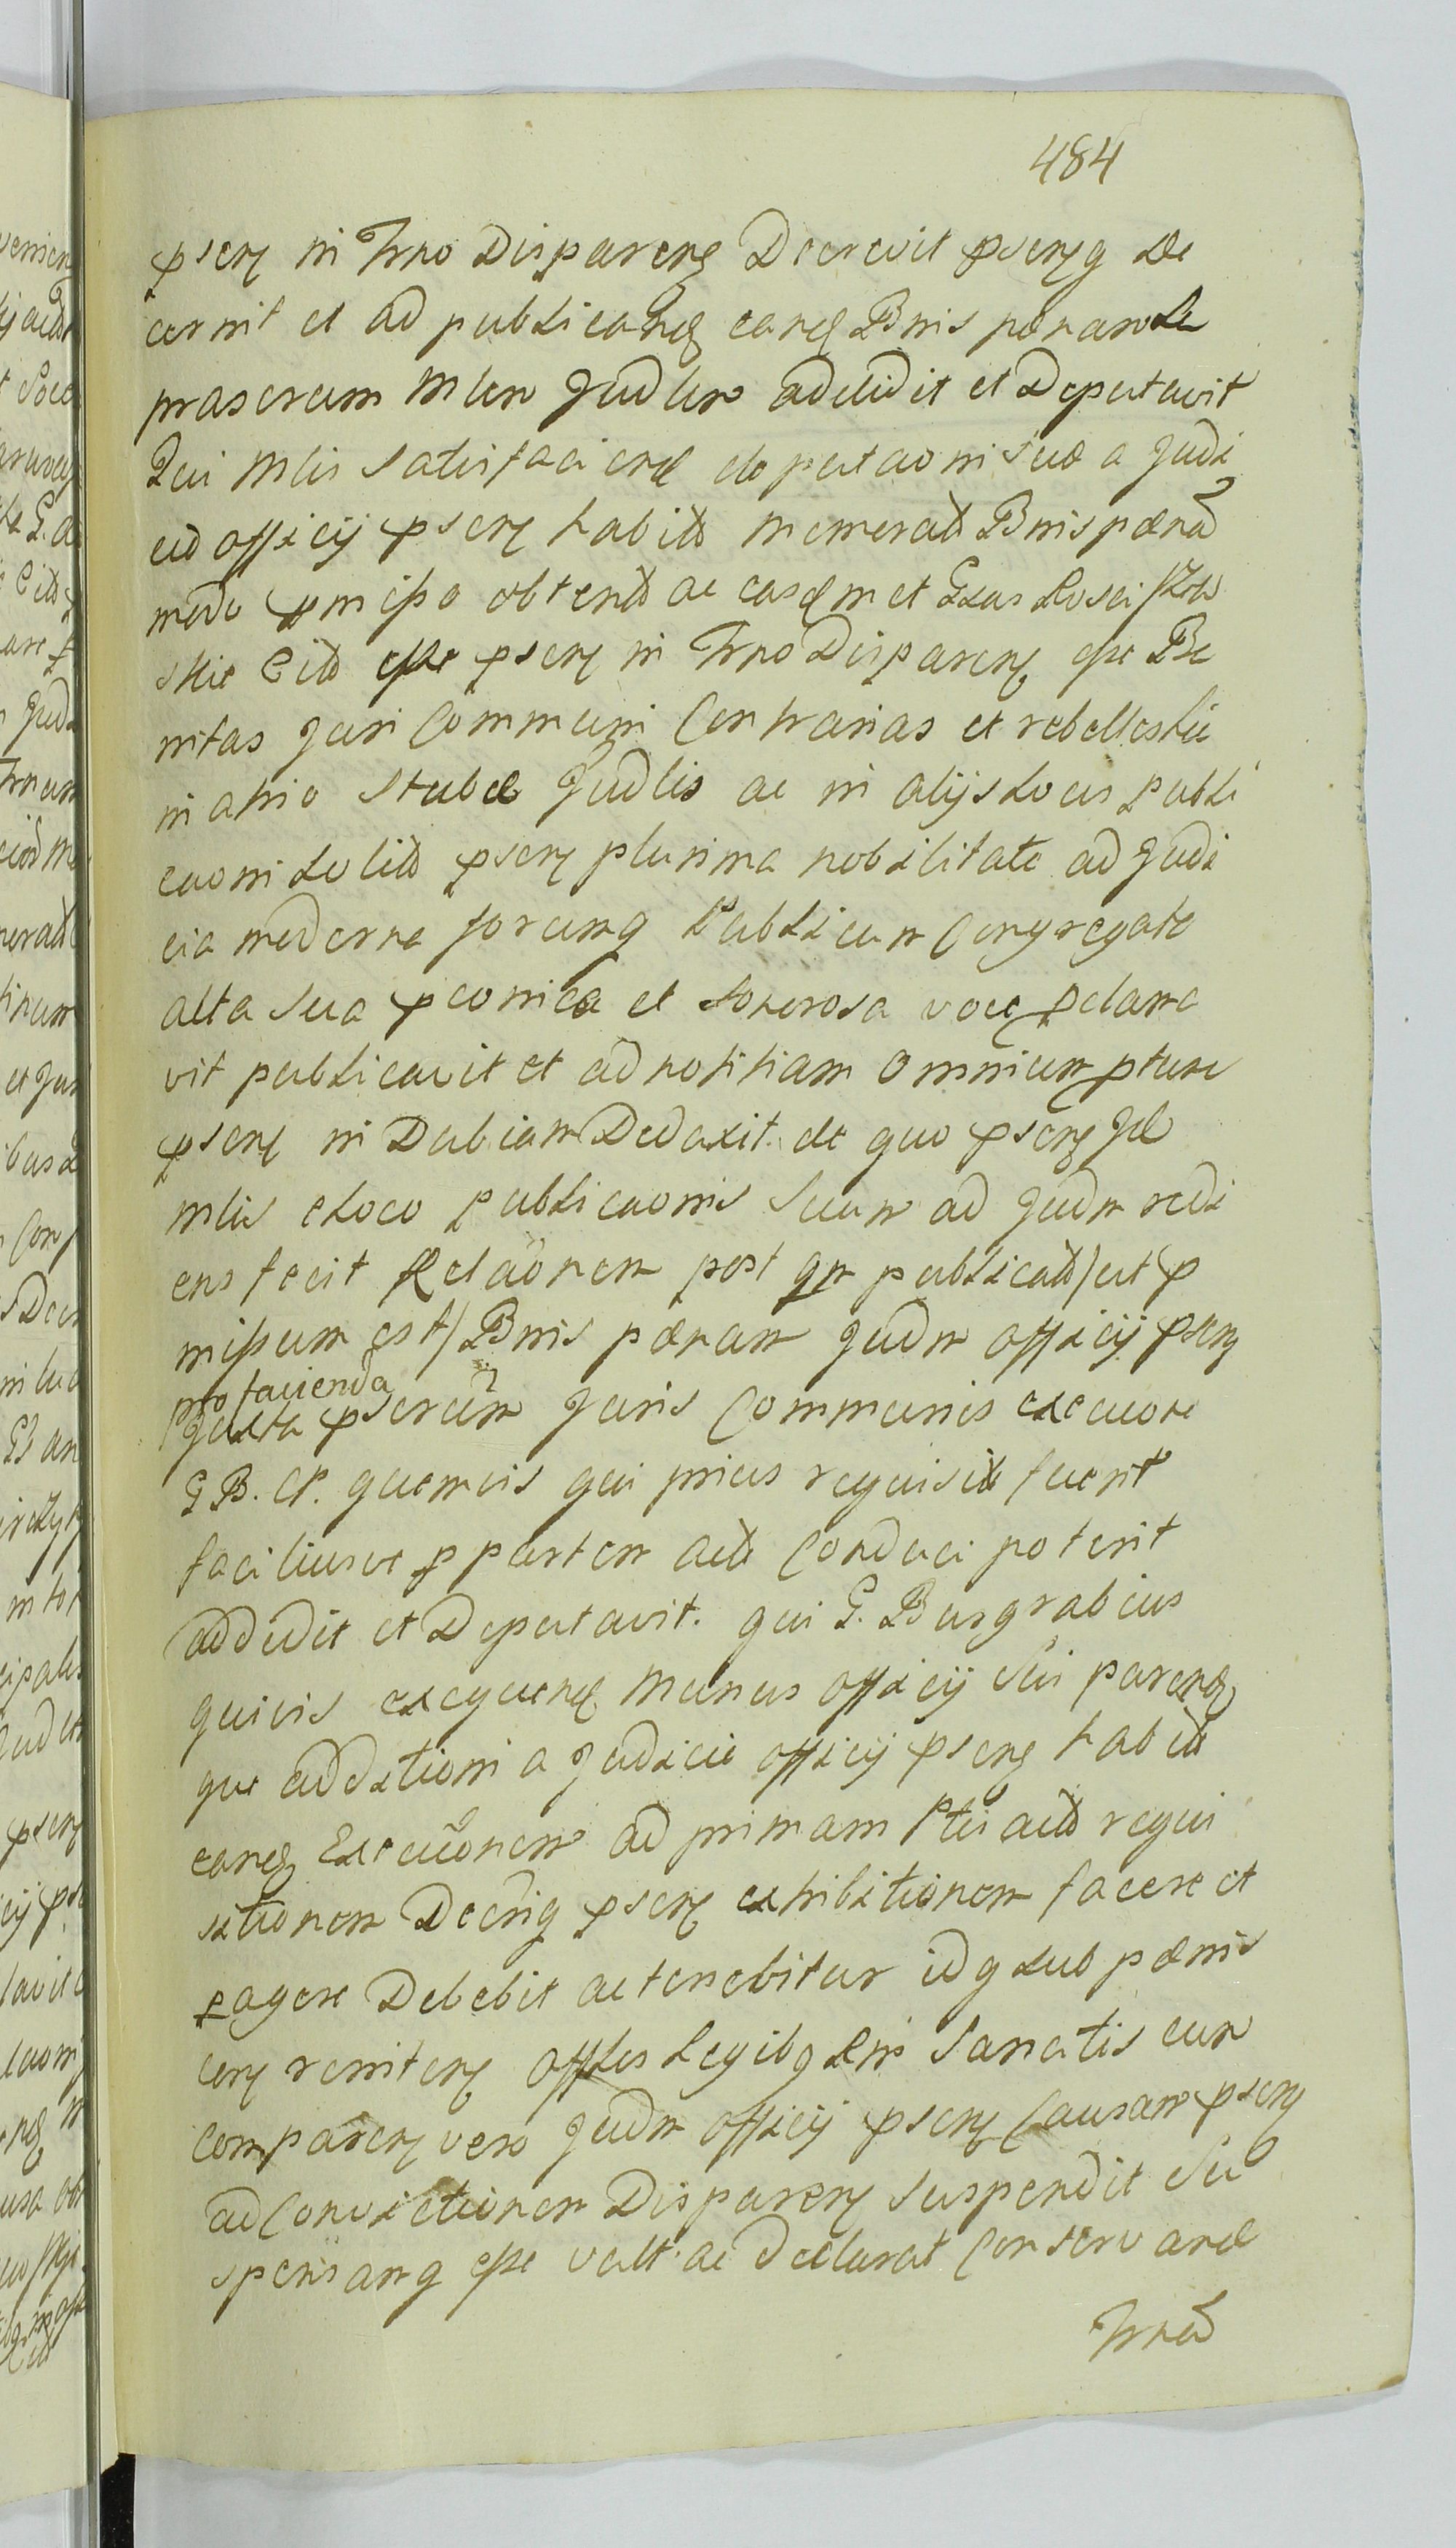 484
pseñ in Trno Disparen Decrevit pseñq De
cernit et ad publicand eand Bnis pœnam de
praserum Mlem Judlem addidit et Deputavit
Qui Mlis Satisfaciend deputaoni suæ a Judi
cio officij pseñ habitæ memoratæ Bnis pœnæ
modo pmisso obtentæ ac easdmet
skie Citæ esse pseñ in Trno Disparen esse Ba
nitas Juri Communi Contrarias et rebelles hic
in atrio Stubæ Judlis ac in alijs locis publi
caoni solitis pseñ plurima nobilitate ad Judi
cia moderna forumq Publicum Congregata
alta sua pconica et sonorosa voce pclama
vit publicavit et ad notitiam omnium ptunc
pseñ in Dubiam Deduxit. de quo pseñ Jd
mlis e loco publicaonis suum ad Judm redi
ens fecit Relãonem post qm publicatã /ut p
missum est/ Bnis pœnam Judm officij pseñ
pro facienda
Juxta pserũm Juris Communis execuone
G B. C. quemvis qui prius requisitus fuerit
faciliusve p partem actã Conduci poterit
addidit et Deputavit. qui G. Burgrabius
quivis exequend munus officij sui parend
que additioni a Judicio officij pseñ habitæ
eand Execuõnem ad primam Ptis actæ requi
sitionem Decriq pseñ exhibitionem facere et
pagere Debebit ac tenebitur idq sub pœnis
con reniten offles Legibq Rni Sancitis cum
Comparen vero Judm officij pseñ Causam pseñ
ad Convictionem Disparen suspendit Su
spensamq esse vult ac declarat Conservand
Trnũ